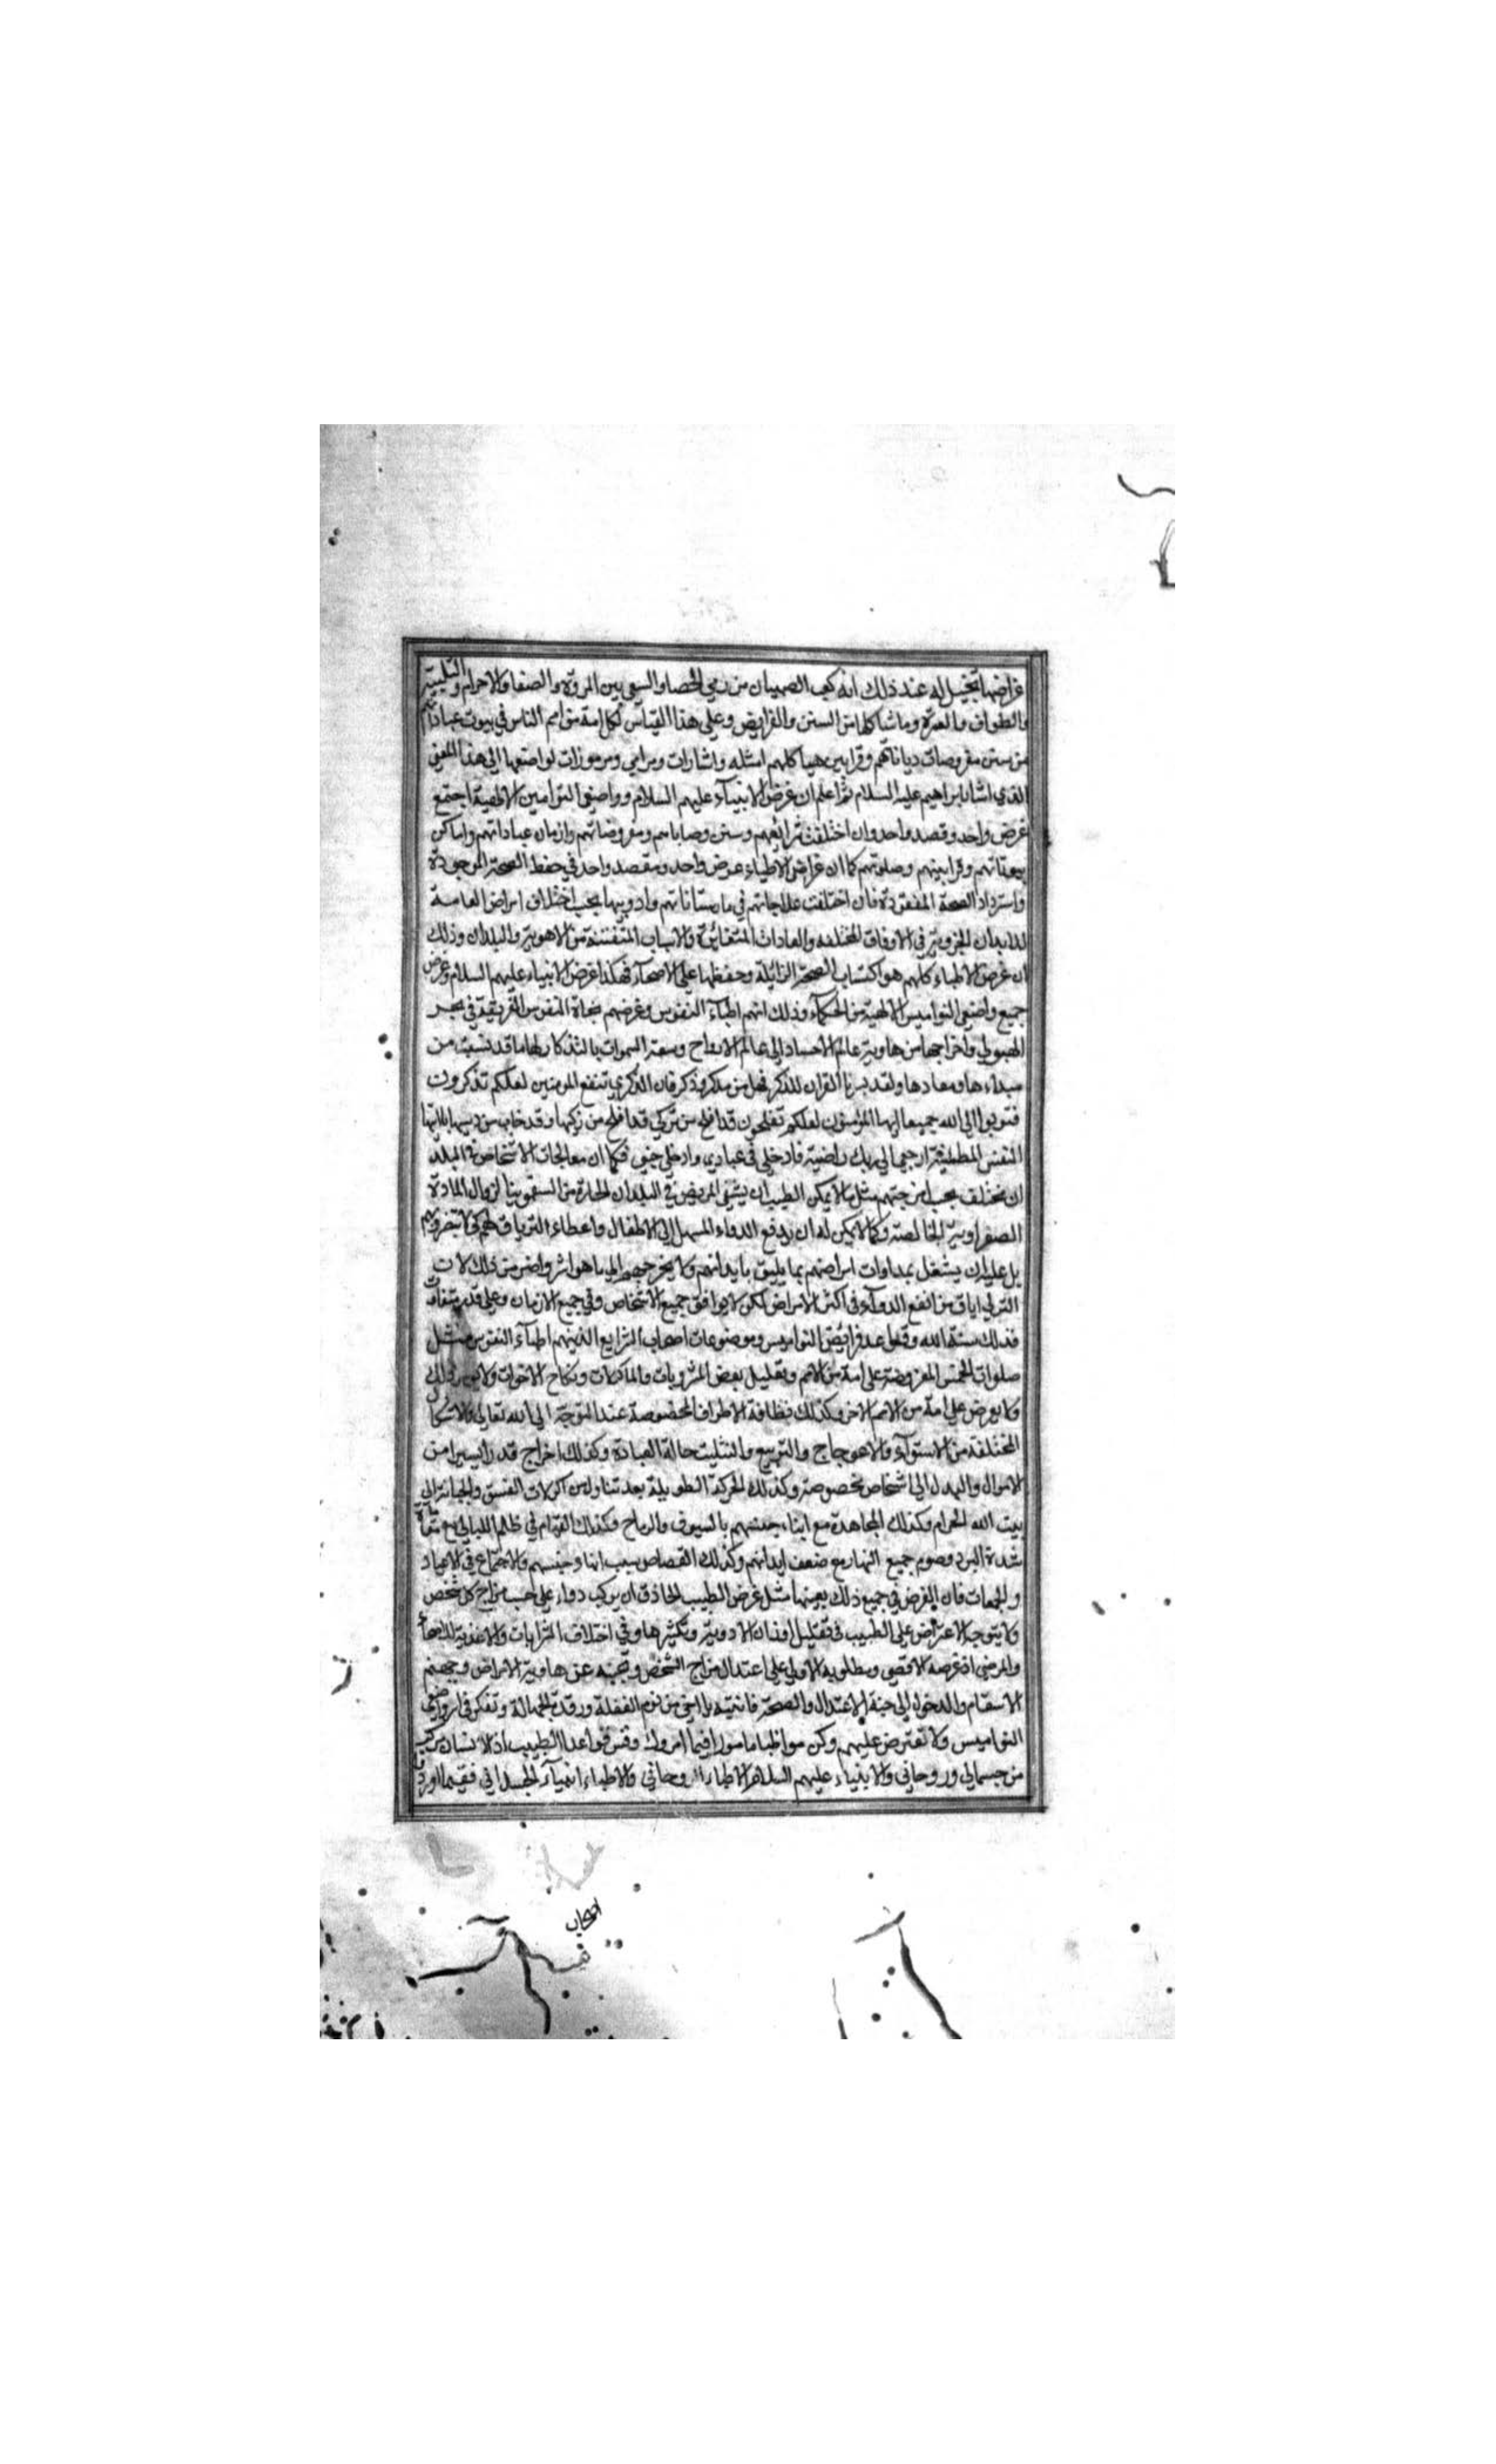 غراضها تخيل له عند ذلك انه كعب الصبيان من رمي الحصا والسعي بين المروة والصفا والاحرام والتلبية
والطواف والعمرة وما شاكلها من السنن والفرايض وعلى هذا القياس لكل امة من امم الناس في بيوت عباداتهم
من سنن مفروضات دياناتهم وقرابين هياكلهم امثله واشارات ومرامي ومرموزات لواضعها الى هذا المعنى
الذي اشار ابراهيم عليه السلام ثم اعلم ان غرض الانبياء عليهم السلام وواضعي النواميس الالهية اجتمع
غرض واحد وقصد واحد وان اختلفت شرايعهم وسنن وصاياهم ومفروضاتهم وازمان عباداتهم واماكن
بيوتاتهم وقرابينهم وصلوتهم كما ان غراض الاطباء غرض واحد ومقصد واحد في حفظ الصحة الموجودة
واسترداد الصحة المفقودة فان اختلفت علاجاتهم في مارستاناتهم وادويتها بحسب اختلاف امراض العامة
للابدان الجزوية في الاوقات المختلفه والعادات المتغائرة والاسباب المتفننة من الاهوية والبلدان وذلك
ان غرض الاطباء كلهم هو اكتساب الصحة الزائلة وحفظها على الاصحآء فهكذا غرض الانبياء عليهم السلام وغرض
جميع واضعي النواميس الالهية من الحكمآء وذلك انهم اطباء النفوس وغرضهم نجاة النفوس الغريقة في بحر
الهيولي واخراجها من هاوية عالم الاجساد الى عالم الارواح وسعة السموات بالتذكار لها ما قد نسيت من
مبداءها ومعادها ولقد يسرنا القران للذكر فهل من مدكر وذكر فان الذكري تنفع المومنين لعلكم تذكرون
فتوبوا الى الله جميعا ايها المؤمنون لعلكم تفلحون قد افلح من تزكى قد افلح من زكيها وقد خاب من دسيها يا ايتها
النفس المطمئنة ارجعي الى ربك راضية فادخلي في عبادي وادخلي جنتي فكما ان معالجات الاشخاص في البلد
ان يختلف بحسب امزجتهم مثل ما لا يمكن الطبيب ان يشفي المريض في البلدان الحارة من السقمونيا لزوال المادة
الصفراوية الخالصة وكما لا يمكن له ان يدفع الدواء المسهل الى الاطفال واعطاء الترياق لهم كي لا يتضرونهم
بل عليه ان يشغل بمداوات امراضهم بما يليق بابدانهم ولا يخرجهم الى ما هو اثر واضر من ذلك لان
الترياق من انفع الدوآء في اكثر الامراض لكن لا يوافق جميع الاشخاص وفي جميع الازمان وعلى قدر متفاوت
فذلك سنة الله وقواعد فرايض النواميس وموضوعات اصحاب الشرايع الذينهم اطبآء النفوس مثل
صلوات الخمس المفروضة على امة من الامم وتقليل بعض المشروبات والماكولات ونكاح الاخوات ذلك
ولا يعرض على امة من الامم الاخر وكذلك نظافة الاطراف المخصوصة عند التوجه الى الله تعالى والاشكال
المختلفة من الاستوآء والاعوجاج والتربيع والتثليث حالة العبادة وكذلك اخراج قدر ايسير امن
الاموال والبدل الى اشخاص مخصوصة وكذلك الحركة الطويلة بعد تناولهن الى
بيت الله الحرام وكذلك المجاهدة مع ابناء جنسهم بالسيوف والرماح وكذلك القيام في ظلم الليالي مع
شدة البرد وصوم جميع النهار مع ضعف ابدانهم وكذلك القصاص بسبب ابناء جنسهم والاجتماع في الاعياد
والجمعات فان الغرض في جميع ذلك بعينها مثل غرض الطبيب الحاذق ان يركب دواء على حسب مزاج كل شخص
ولا يتوجه الاعتراض على الطبيب في تقليل اوزان الادوية وتكثيرها وفي اختلاف الشرابات والاغذية للاصحآء
والمرضى اذ غرضه الاقصى ومطلوبه الاولى على اعتدال مزاج الشخص وتجنبه عن هاوية الامراض وجهنم
الاسقام والدخول الى جنة الاعتدال والصحة فانتبه يا اخي من نوم الغفلة ورقدة الجهالة وتفكر في امر واضعي
النواميس ولا تعترض عليهم وكن مواظبا مامورا فيما امروك وقس قواعد الطبيب اذ الانسان مركب
من جسماني وروحاني والانبياء عليهم السلام الاطباء الروحاني والاطباء انبيآء الجسداني فقيما